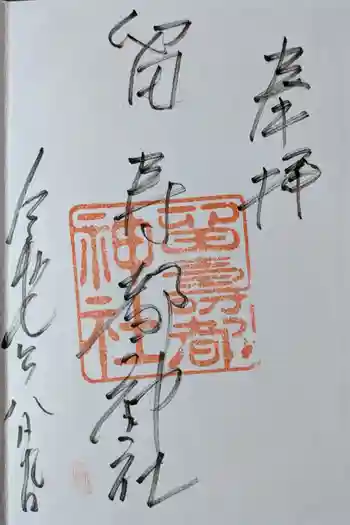 奉拝
留寿都神社
留寿都
神社
令和七年八月九日